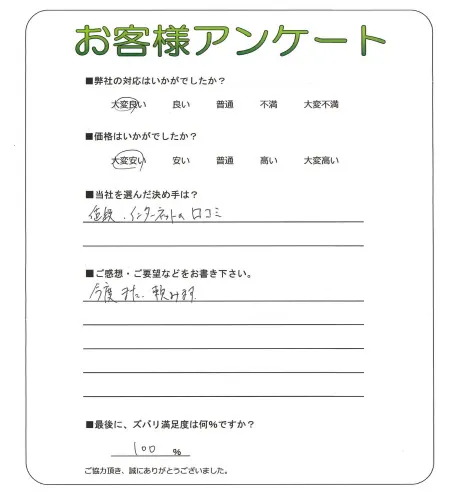 お客様アンケート
■弊社の対応はいかがでしたか？
大変良い 良い 普通 不満 大変不満
■価格はいかがでしたか？
大変安い 安い 普通 高い 大変高い
■当社を選んだ決め手は？
値段、インターネットの口コミ
■ご感想・ご要望などをお書き下さい。
今度また、頼みます
■最後に、ズバリ満足度は何％ですか？
100 %
ご協力頂き、誠にありがとうございました。